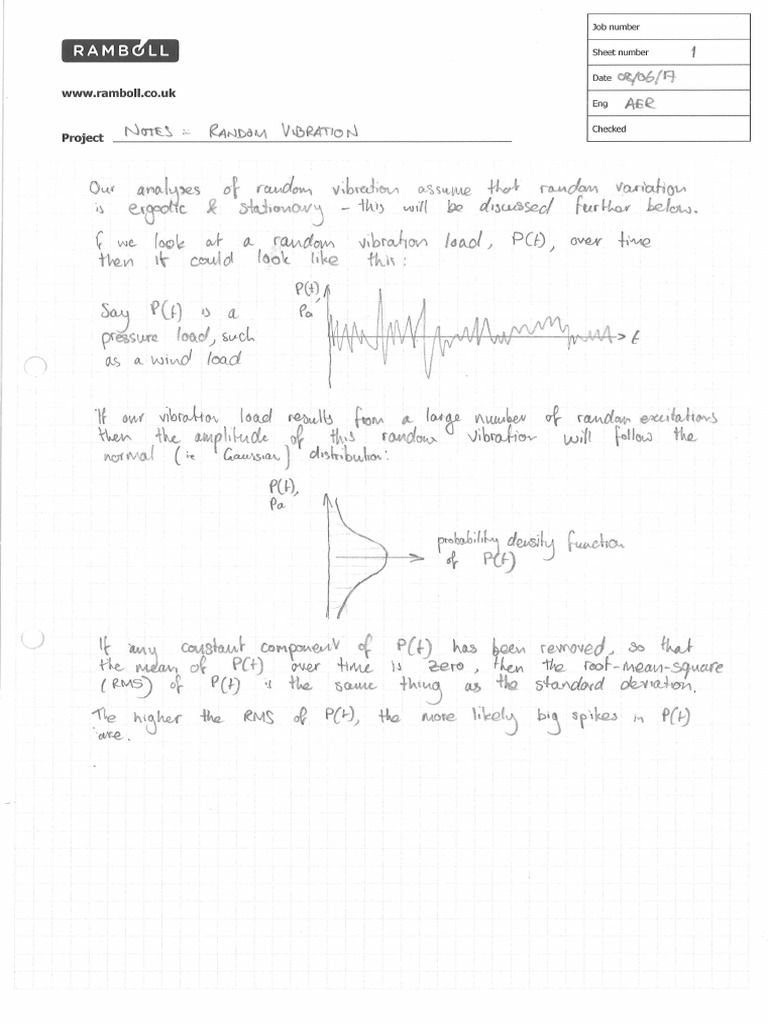 RAMBOLL
www.ramboll.co.uk
Project NOTES :- RANDOM VIBRATION
Job number
Sheet number 1
Date 02/06/17
Eng AER
Checked
Our analyses of random vibration assume that random variation
is ergodic & stationary - this will be discussed further below.
If we look at a random vibration load, P(t), over time
then it could look like this:
P(t),
Pa
t
Say P(t) is a
pressure load, such
as a wind load
If our vibration load results from a large number of random excitations
then the amplitude of this random vibration will follow the
normal (ie Gaussian) distribution:
P(t),
Pa
probability density function
of P(t)
If any constant component of P(t) has been removed, so that
the mean of P(t) over time is zero, then the root-mean-square
(RMS) of P(t) is the same thing as the standard deviation.
The higher the RMS of P(t), the more likely big spikes in P(t)
are.